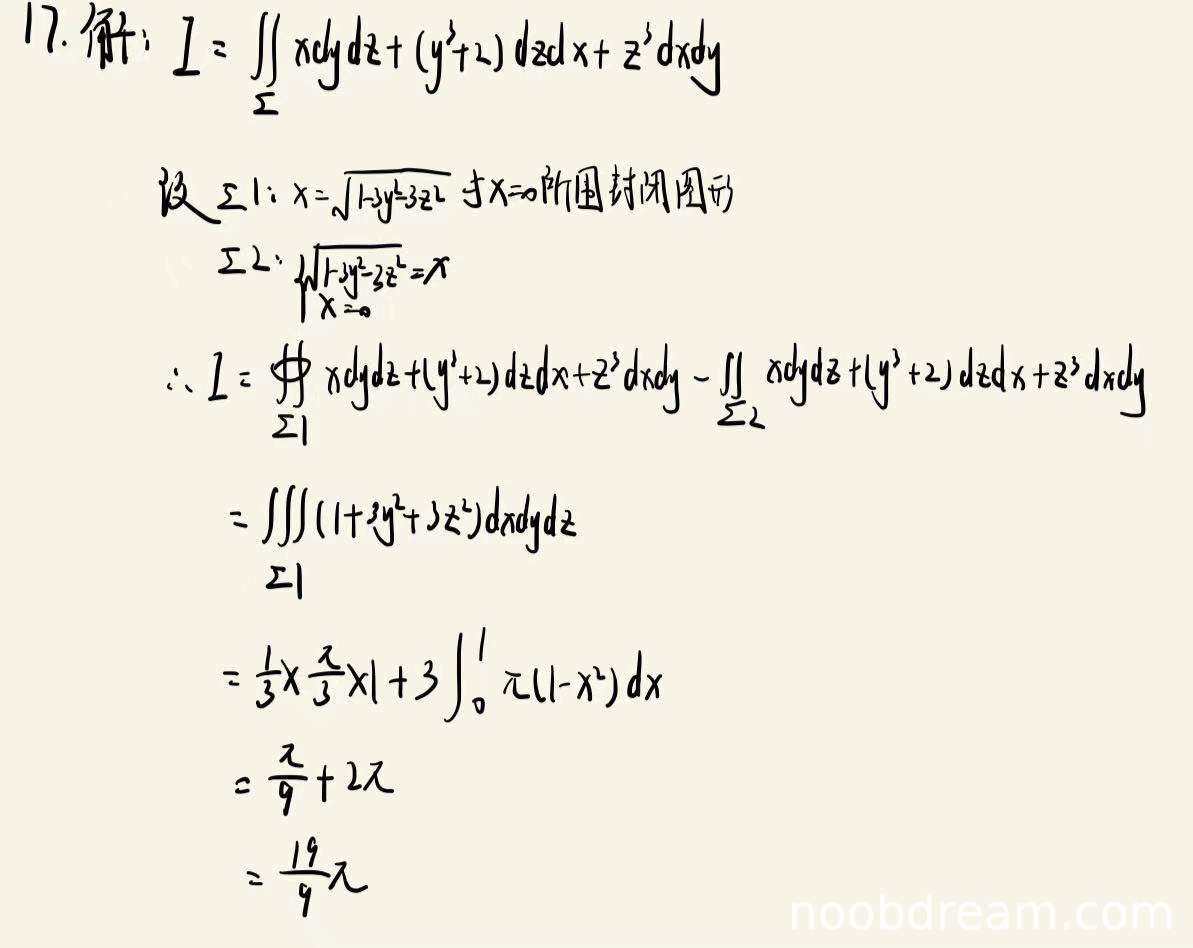 17. 解: I = ∬_Σ xdydz + (y³+2) dzdx + z³dxdy
设 Σ1: x=√(1-3y²-3z²) 与x=0所围封闭图形
Σ2: { √(1-3y²-3z²) = x
x=0
∴ I = ∯_Σ1 xdydz+(y³+2)dzdx+z³dxdy - ∬_Σ2 xdydz+(y³+2)dzdx+z³dxdy
= ∭_Σ1 (1+3y²+3z²)dxdydz
= 1/3 × π/3 × 1 + 3∫₀¹ π(1-x²)dx
= π/9 + 2π
= 19/9 π
noobdream.com